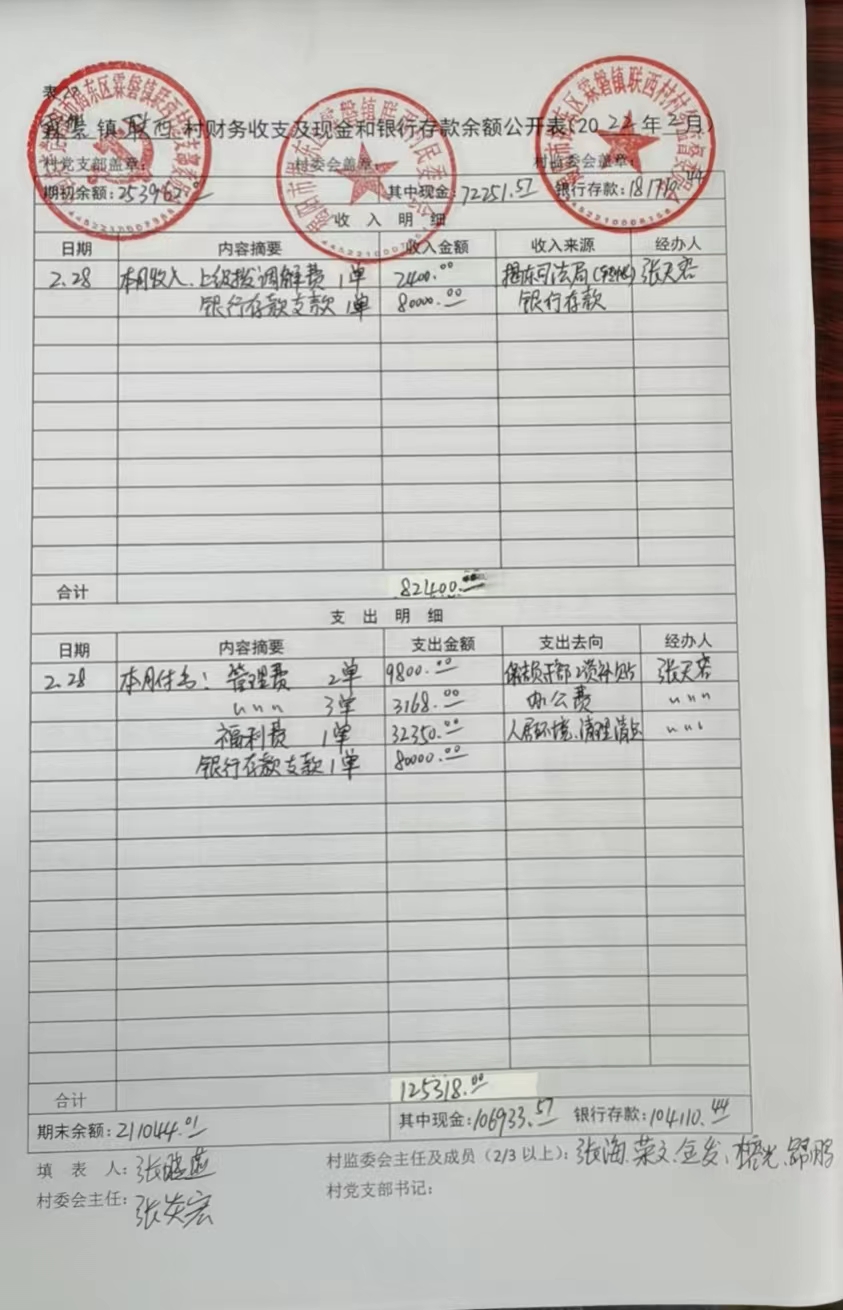 表2
霖磐镇联西村财务收支及现金和银行存款余额公开表(2022年2月)
村党支部盖章: 村委会盖章: 村监委会盖章:
期初余额:253962.01 其中现金:72251.57 银行存款:181710.44
收入明细
日期 内容摘要 收入金额 收入来源 经办人
2.28 本月收入、上级拨调解费 1单 2400.00 揭东司法局 张天容
银行存款支款 1单 80000.00 银行存款
合计 82400.00
支出明细
日期 内容摘要 支出金额 支出去向 经办人
2.28 本月付出: 管理费 2单 9800.00 干部 补贴 张天容
〃〃〃 3单 3168.00 办公费 〃〃〃
福利费 1单 32350.00 人居环境、清理 〃〃〃
银行存款支款 1单 80000.00
合计 125318.00
期末余额:211044.01 其中现金:106933.57 银行存款:104110.44
填表人:张 村监委会主任及成员(2/3以上):张海、荣文、金发、
村委会主任:张炎宏 村党支部书记: